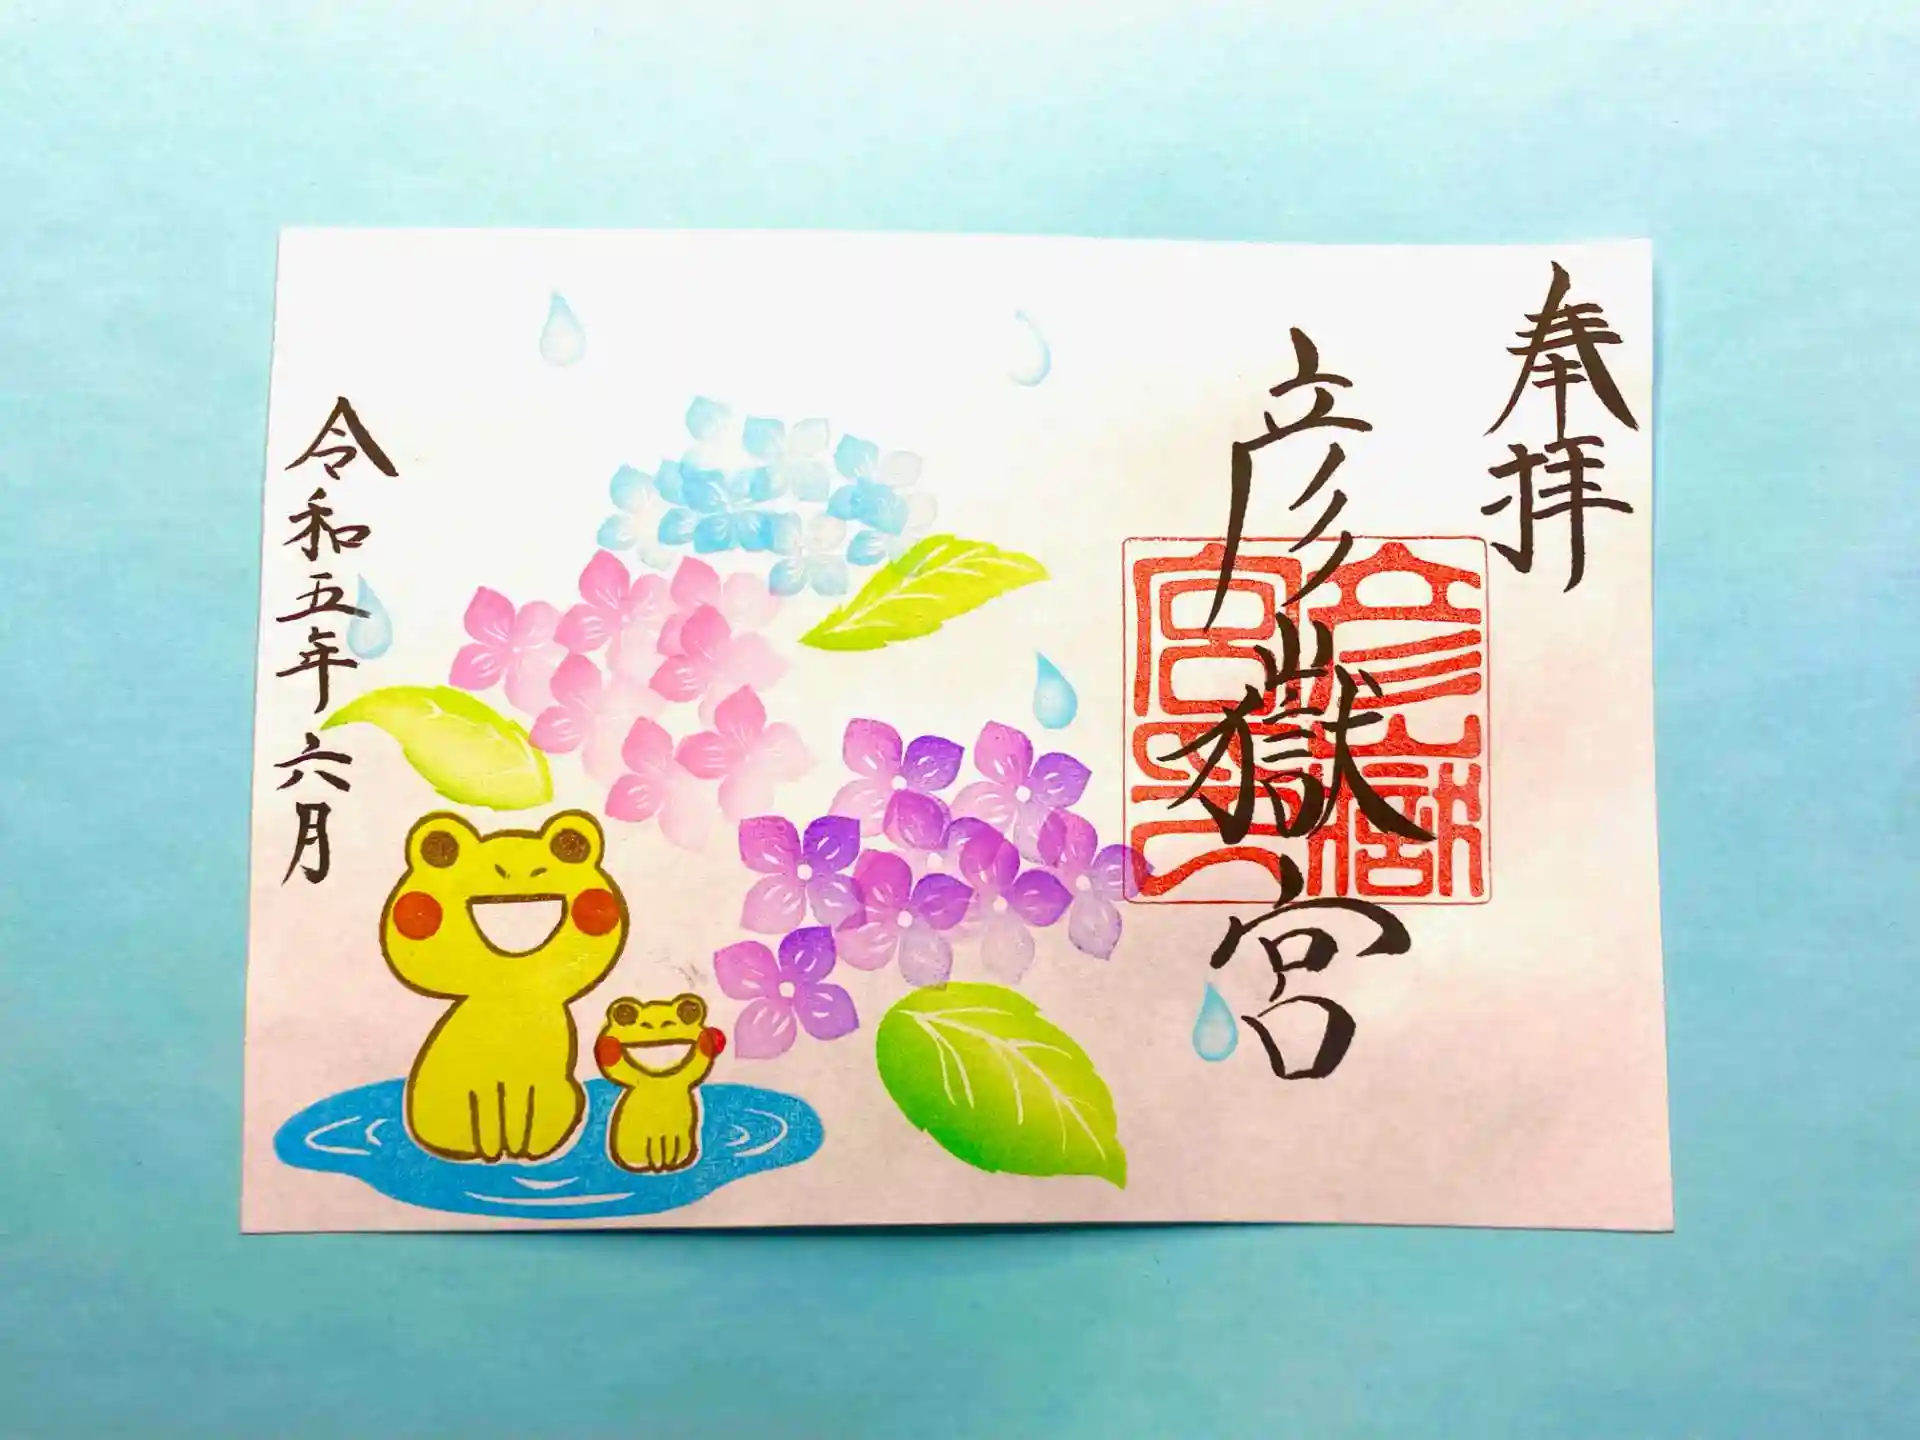 奉拝
彦嶽宮
彦嶽宮之
令和五年六月